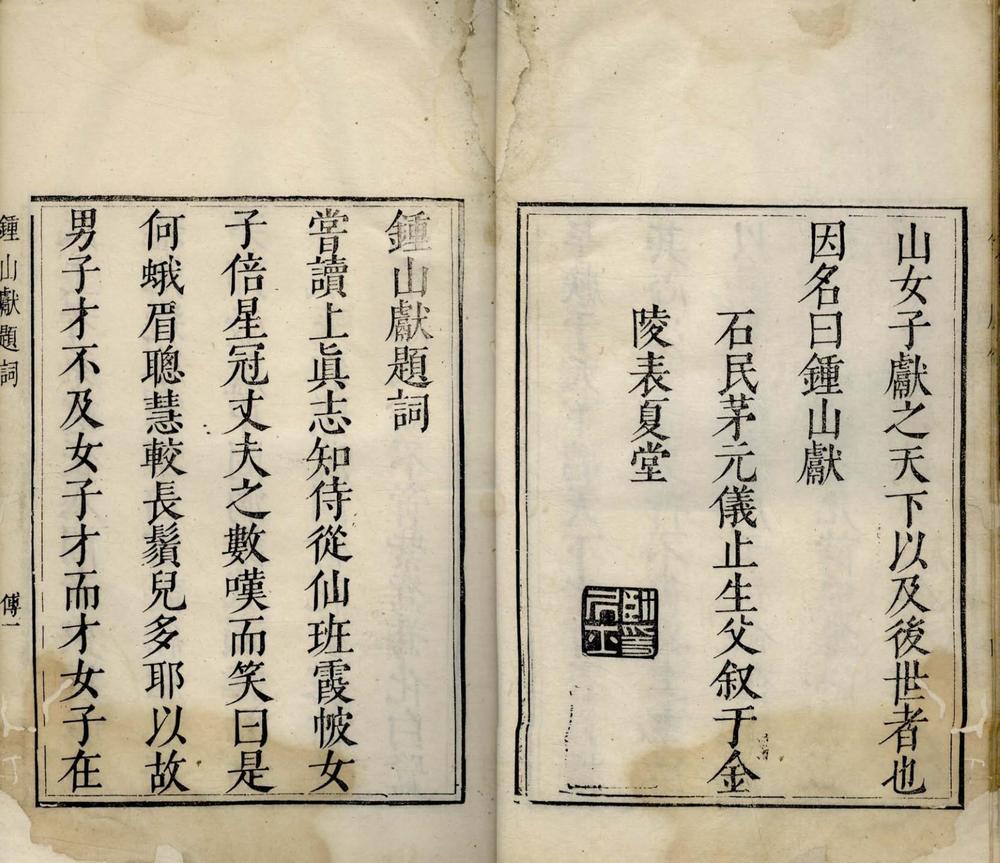 山女子獻之天下以及後世者也
因名曰鍾山獻
石民茅元儀止生父叙于金
陵表夏堂
鍾山獻題詞
嘗讀上眞志知侍從仙班霞帔女
子倍星冠丈夫之數嘆而笑曰是
何蛾眉聰慧較長鬚兒多耶以故
男子才不及女子才而才女子在
鍾山獻題詞
傅一